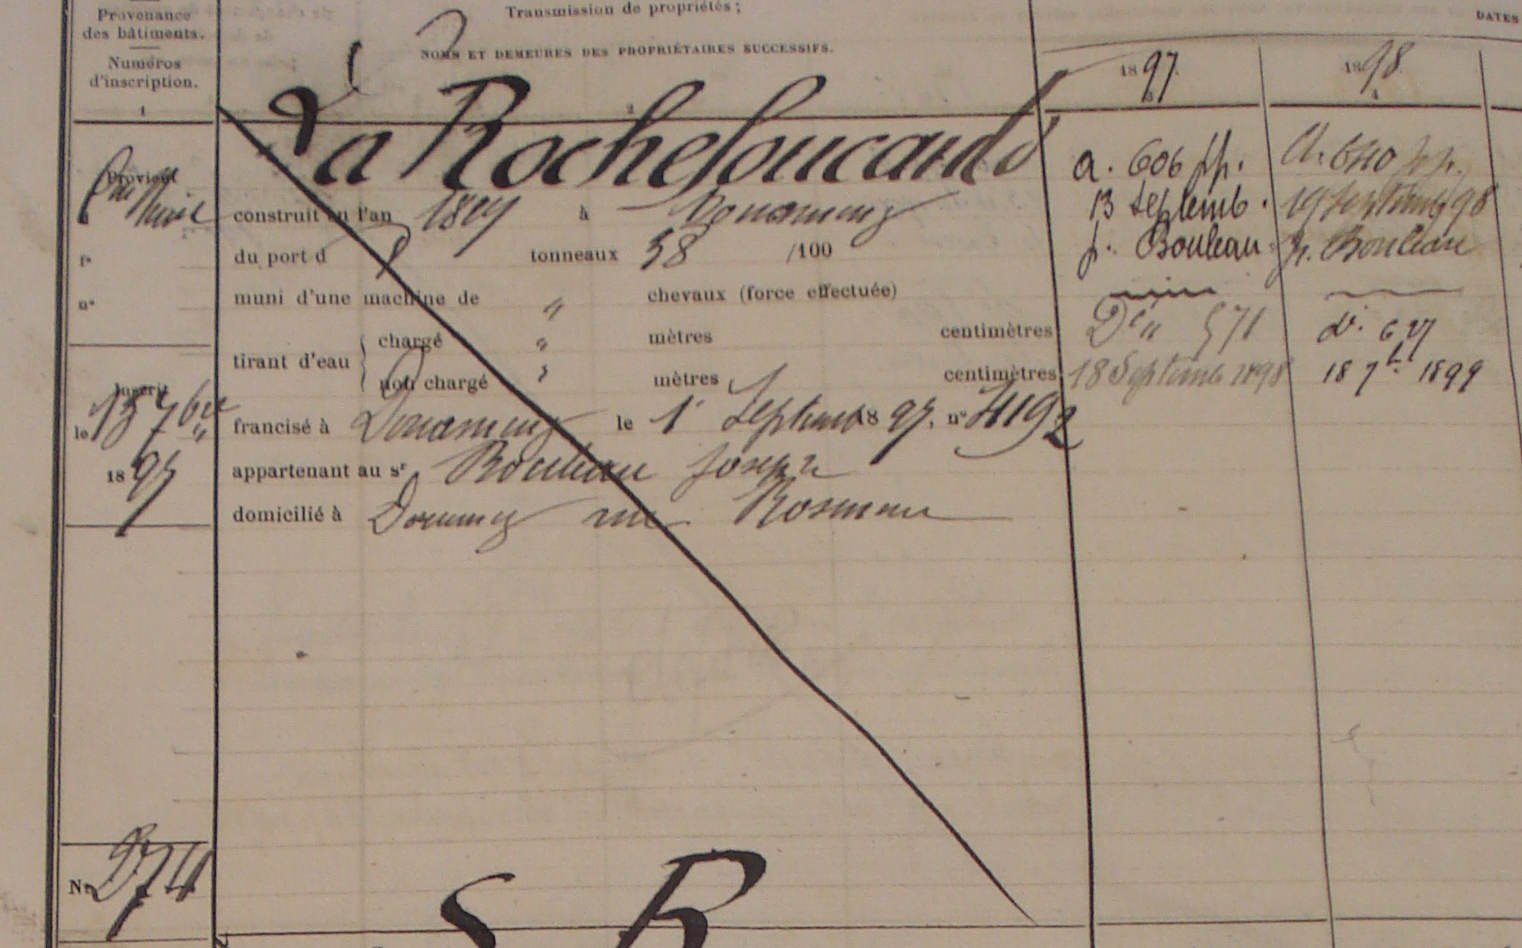 Provenance
des bâtiments.
Numéros
d'inscription.
1
Transmission de propriétés;
NOMS ET DEMEURES DES PROPRIÉTAIRES SUCCESSIFS.
2
DATES
1897.
3
1898.
4
La Rochefoucauld
Provient
construit en l'an 1897 à Douarnenez
du port d tonneaux 58 /100
fº
nº
muni d'une machine de " chevaux (force effectuée)
tirant d'eau
chargé " mètres centimètres
non chargé " mètres centimètres
Inscrit
le 13 7bre
1897
francisé à Douarnenez le 1er Septemb 1897. nº 4192
appartenant au sr Bouleau Joseph
domicilié à Douarnenez rue
Nº 274
a. 606 pp.
13 Septemb.
p. Bouleau
Dº " 571
18 Septemb 1898
19 Septemb 98
p. Bouleau
d. 627
18 7b. 1899